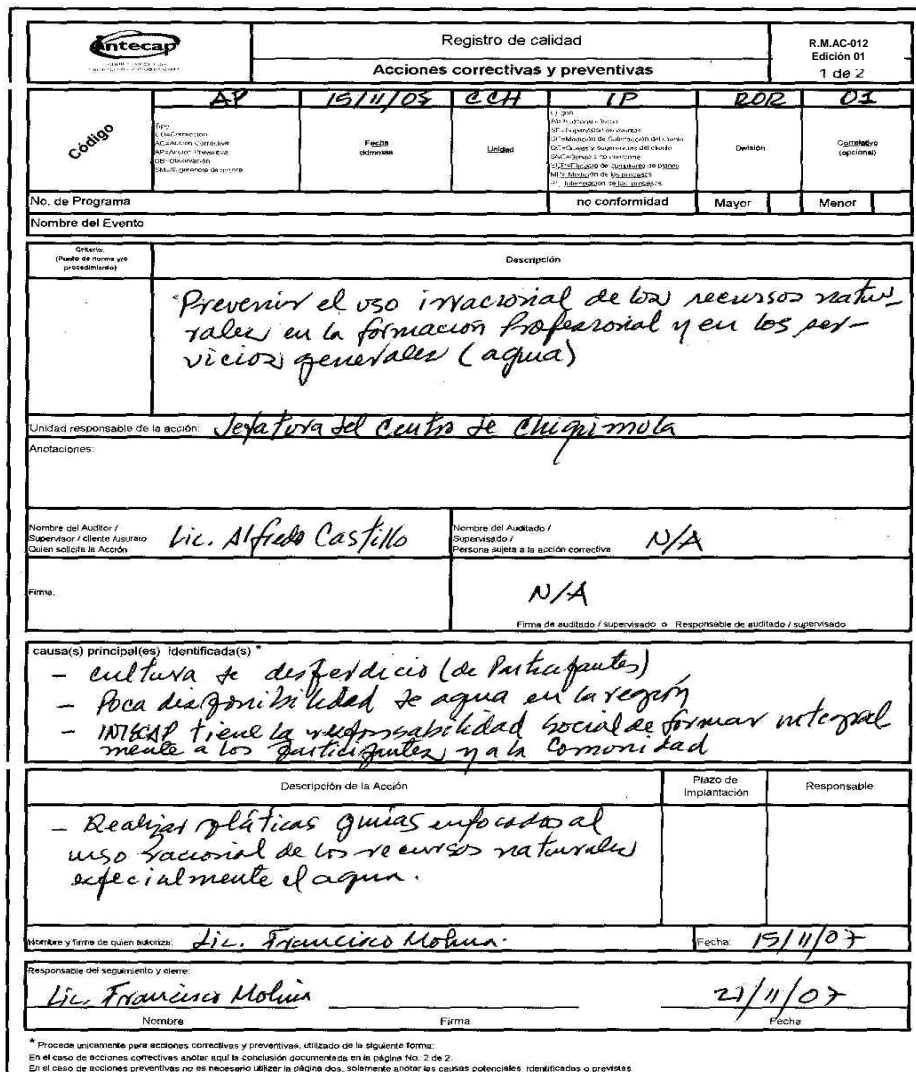 intecap
Registro de calidad
Acciones correctivas y preventivas
R.M.AC-012
Edición 01
1 de 2
Código
AP
15/11/05
CCH
IP
ROR
01
Tipo
CO=Corrección
AC=Acción Correctiva
AP=Acción Preventiva
OB=Observación
Fecha
ddmmaa
Unidad
Origen
División
Correlativo
(opcional)
No. de Programa
no conformidad
Mayor
Menor
Nombre del Evento
Criterio:
(Punto de norma y/o
procedimiento)
Descripción
Prevenir el uso irracional de los recursos natu-
rales en la formación Profesional y en los ser-
vicios generales (agua)
Unidad responsable de la acción: Jefatura del Centro de Chiquimula
Anotaciones:
Nombre del Auditor /
Supervisor / cliente /usurario
Quien solicita la Acción
Lic. Alfredo Castillo
Nombre del Auditado /
Supervisado /
Persona sujeta a la acción correctiva
N/A
Firma:
N/A
Firma de auditado / supervisado o Responsable de auditado / supervisado
causa(s) principal(es) identificada(s) *
- cultura de desperdicio (de Participantes)
- Poca disponibilidad de agua en la región
- INTECAP tiene la responsabilidad social de formar integral
mente a los participantes y a la Comunidad
Descripción de la Acción
Plazo de
Implantación
Responsable
- Realizar pláticas guías enfocadas al
uso racional de los recursos naturales
especialmente el agua.
Nombre y firma de quien autoriza: Lic. Francisco Molina.
Fecha: 15/11/07
Responsable del seguimiento y cierre:
Lic. Francisco Molina
27/11/07
Nombre
Firma
Fecha
* Procede unicamente para acciones correctivas y preventivas, utilizado de la siguiente forma:
En el caso de acciones correctivas anotar aquí la conclusión documentada en la página No. 2 de 2.
En el caso de acciones preventivas no es necesario utilizar la página dos, solamente anotar las causas potenciales identificadas o previstas